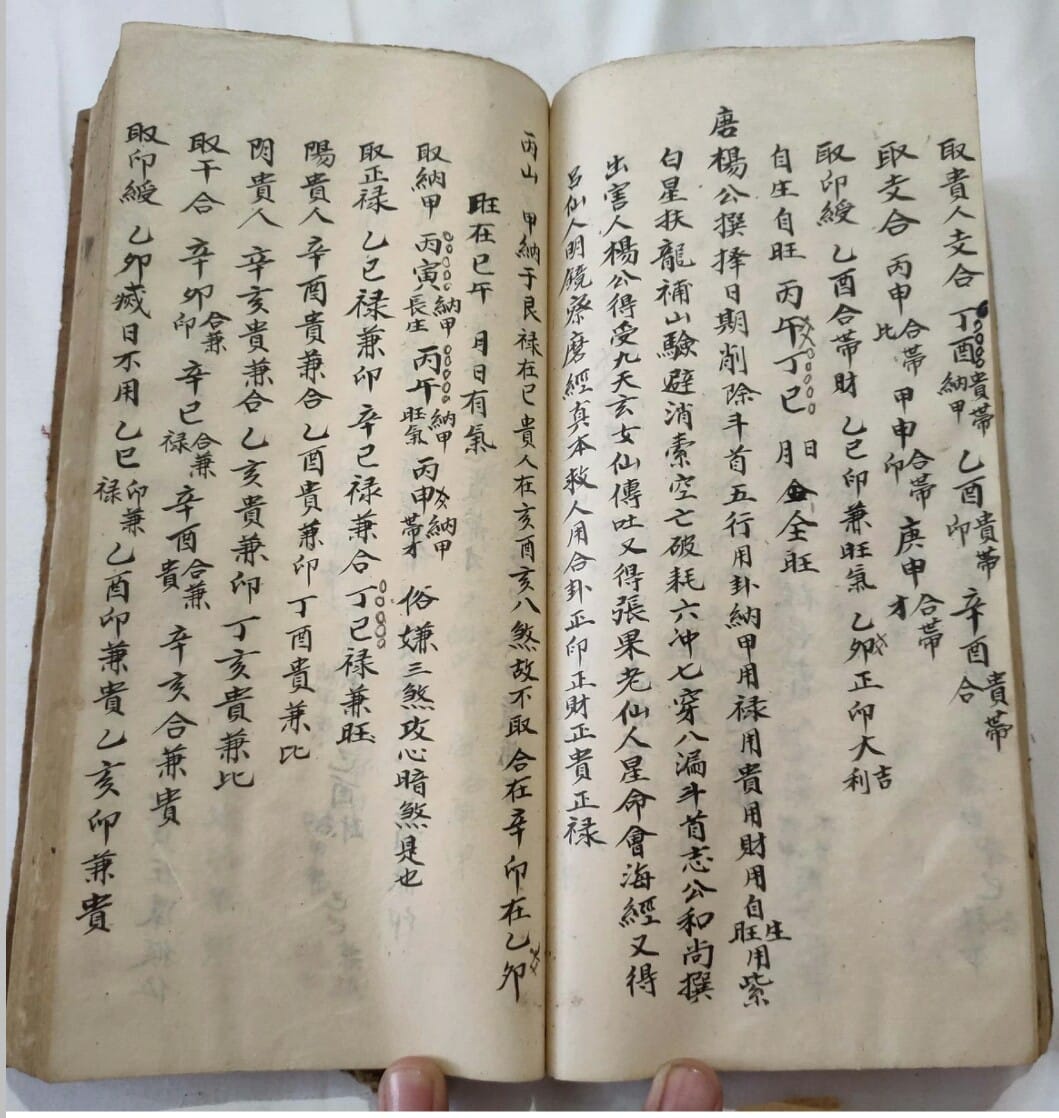 取貴人支合 丁酉貴帶納甲 乙酉貴帶印 辛酉貴帶合
取支合 丙申合帶比 甲申合帶印 庚申合帶才
取印綬 乙酉合帶財 乙巳印兼旺氣 乙卯正印大吉利
自生自旺 丙午丁巳日月全旺
唐楊公撰擇日期削除斗首五行用卦納甲用禄用貴用財用自生旺用紫
白星扶龍補山驗避消索空亡破耗六冲七穿八漏斗首志公和尚撰
出害人楊公得受九天玄女仙傳吐又得張果老仙人星命會海經又得
呂仙人明鏡察磨經真本救人用合卦正印正財正貴正禄
丙山 甲納于艮禄在巳貴人在亥酉亥八煞故不取合在辛印在乙卯
旺在巳午 月日有氣
取納甲 丙寅納甲長生 丙午納甲旺氣 丙申納甲帶才 俗嫌三煞攻心暗煞是也
取正禄 乙巳禄兼印 辛巳禄兼合 丁巳禄兼旺
陽貴人 辛酉貴兼合 乙酉貴兼印 丁酉貴兼比
閉貴人 辛亥貴兼合 乙亥貴兼印 丁亥貴兼比
取干合 辛卯合兼印 辛巳合兼禄 辛酉合兼貴 辛亥合兼貴
取印綬 乙卯滅日不用 乙巳印兼禄 乙酉印兼貴 乙亥印兼貴